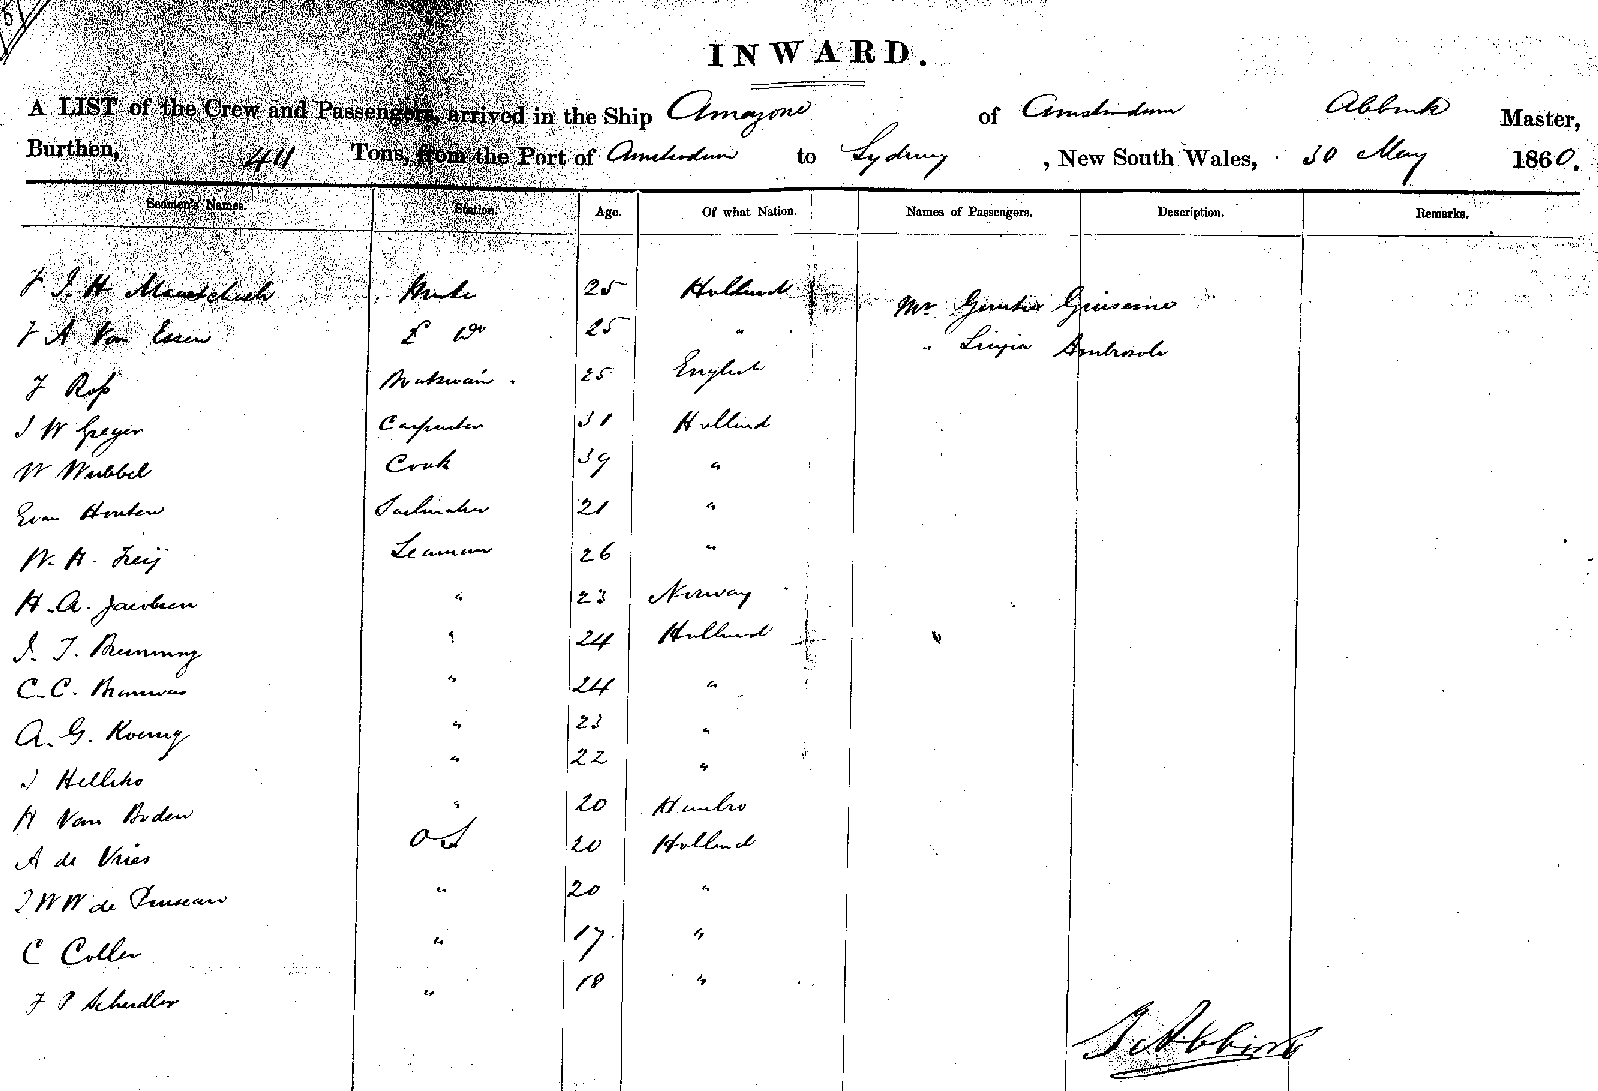 INWARD.
A LIST of the Crew and Passengers, arrived in the Ship Amazone of Amsterdam Abbink Master,
Burthen, 411 Tons, from the Port of Amsterdam to Sydney , New South Wales, 30 May 1860.
Seamen's Names. Station. Age. Of what Nation. Names of Passengers. Description. Remarks.
J. H Mate 25 Holland Mr
F A Van Essen 2 do 25 " "
F Ross Boatswain 25 English
J W Greyer Carpenter 31 Holland
W Wubbel Cook 39 "
E van Houten Sailmaker 21 "
W. H. Freij Seaman 26 "
H. A. Jacobsen " 23 Norway
J. F. Brunning " 24 Holland
C. C. " 24 "
A. G. Koenig " 23 "
J Helleko " 22 "
H Van Boden " 20 Hambro
A de Vries OS 20 Holland
J W W de " 20 "
C Coller " 17 "
F P Schedler " 18 "
J Abbink